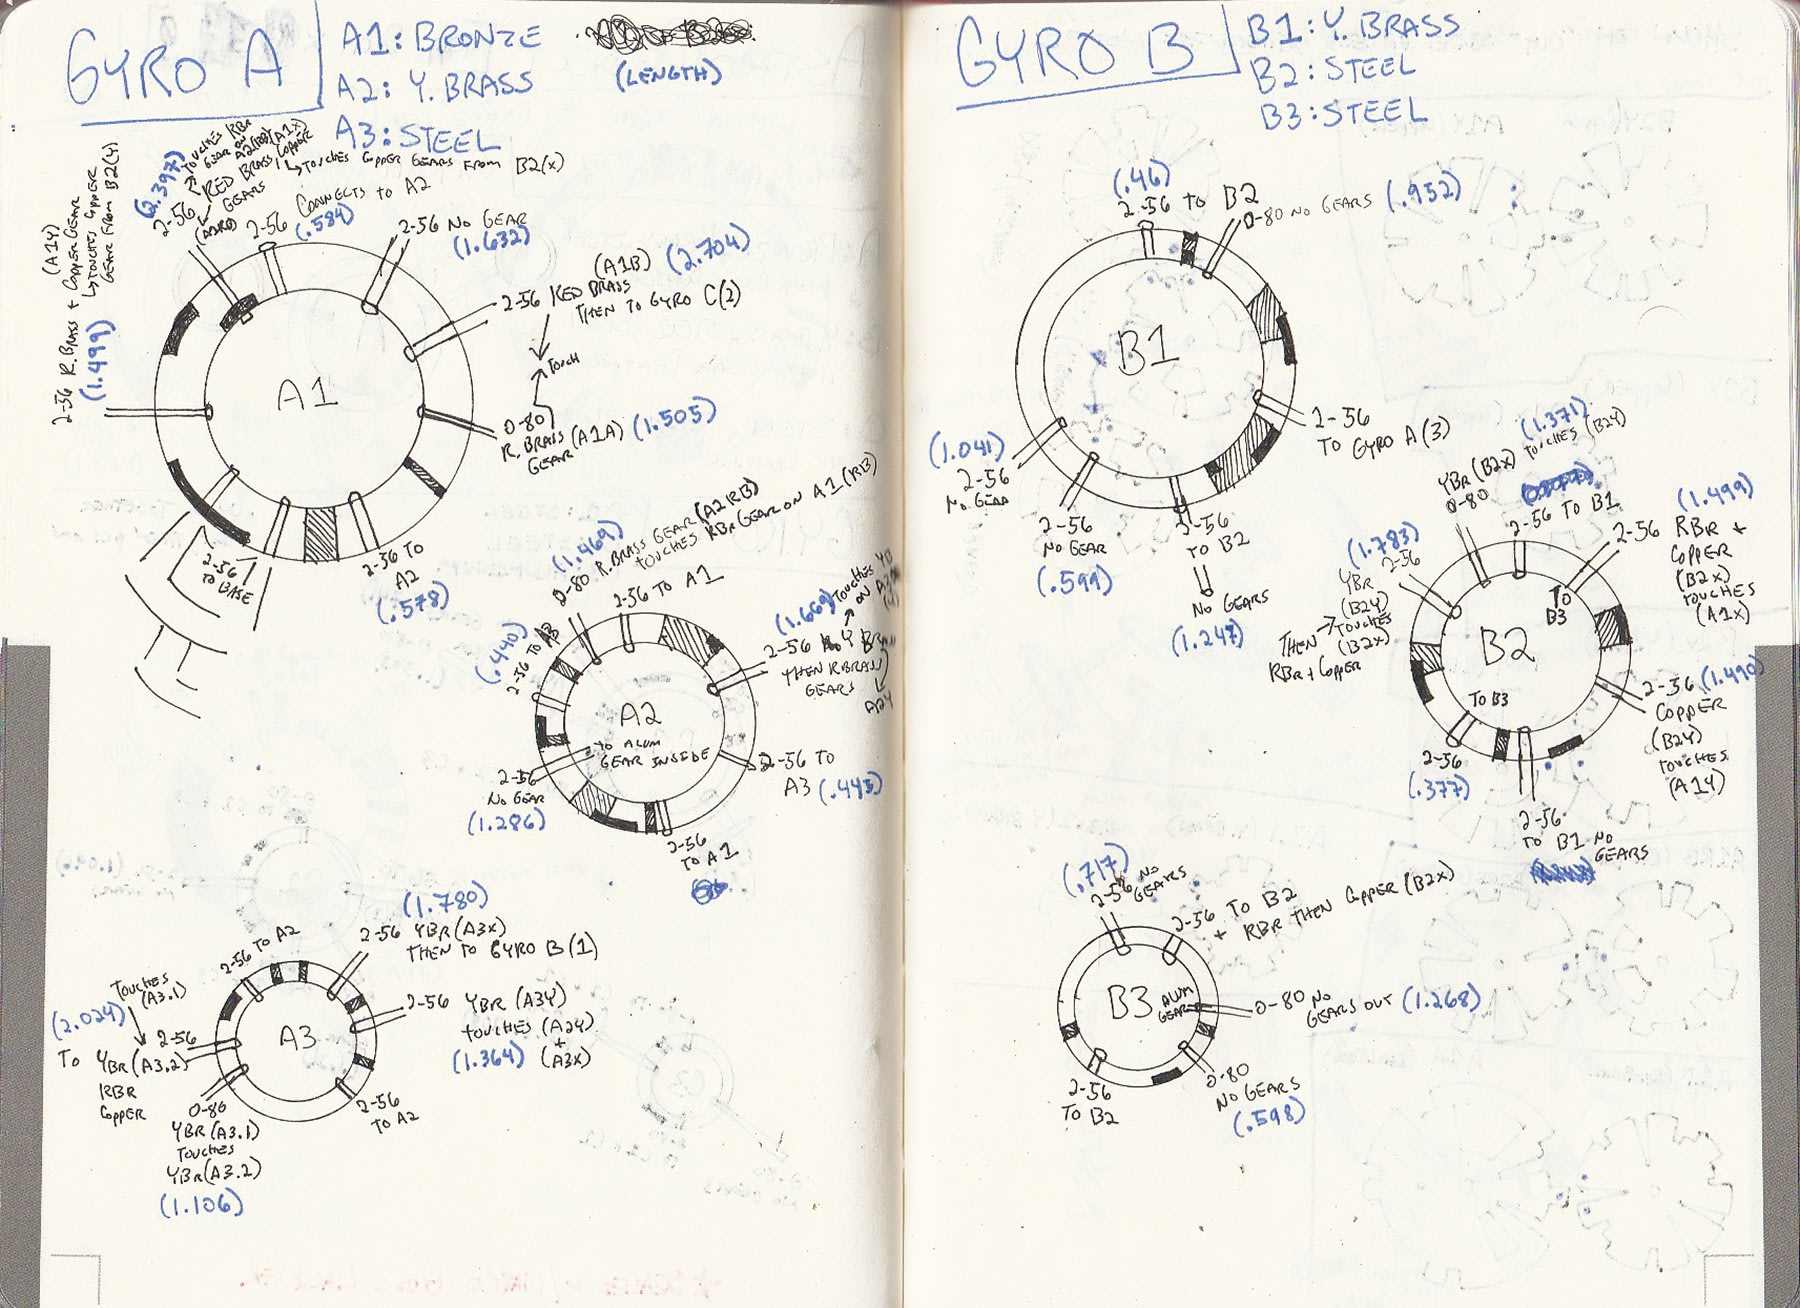 GYRO A
A1: BRONZE
A2: Y. BRASS
A3: STEEL
(LENGTH)
(2.397)
2-56
TOUCHES RBR
GEAR ON
A2(RB)
RED BRASS
GEARS
(A1RB)
(A1X)
COPPER
↳ TOUCHES COPPER GEARS FROM B2(X)
2-56 CONNECTS TO A2
(.584)
2-56 NO GEAR
(1.632)
(A1B) (2.704)
2-56 RED BRASS
THEN TO GYRO C(2)
TOUCH
0-80
R. BRASS (A1A) (1.505)
GEAR
(A1Y)
2-56 R. BRASS + COPPER GEAR
↳ TOUCHES COPPER
GEAR FROM B2(Y)
(1.499)
A1
2-56
TO BASE
2-56 TO
A2
(.578)
(1.469)
0-80 R. BRASS GEAR (A2RB)
TOUCHES RBR GEAR ON A1(RB)
2-56 TO A1
(.440)
2-56 TO A3
(1.669)
TOUCHES
ON
2-56 Y BR
THEN R BRASS
GEARS
A2Y
A2
TO ALUM
GEAR INSIDE
2-56
NO GEAR
(1.286)
2-56 TO
A3 (.445)
2-56
TO A1
2-56 TO A2
(1.780)
2-56 YBR (A3X)
THEN TO GYRO B(1)
2-56 YBR (A3Y)
TOUCHES (A2Y)
+
(1.364) (A3X)
TOUCHES
(A3.1)
(2.024)
2-56
TO YBR (A3.2)
RBR
COPPER
A3
0-80
YBR (A3.1)
TOUCHES
YBR (A3.2)
(1.106)
2-56
TO A2
GYRO B
B1: Y. BRASS
B2: STEEL
B3: STEEL
(.46)
2-56 TO B2
0-80 NO GEARS (.952)
B1
2-56
TO GYRO A(3)
(1.041)
2-56
NO GEAR
2-56
NO GEAR
(.599)
2-56
TO B2
NO GEARS
(1.247)
(1.371)
YBR (B2X) TOUCHES (B2Y)
0-80
2-56 TO B1
(1.499)
2-56 RBR +
COPPER
(B2X)
TOUCHES
(A1X)
(1.783)
2-56
YBR
(B2Y)
THEN → TOUCHES
(B2X)
RBR + COPPER
TO
B3
B2
TO B3
2-56 (1.490)
COPPER
(B2Y)
TOUCHES
(A1Y)
2-56
(.377)
2-56
TO B1 NO
GEARS
(.717)
2-56 NO
GEARS
2-56 TO B2
+ RBR THEN COPPER (B2X)
B3
ALUM
GEAR
0-80 NO
GEARS OUT (1.268)
2-56
TO B2
0-80
NO GEARS
(.598)